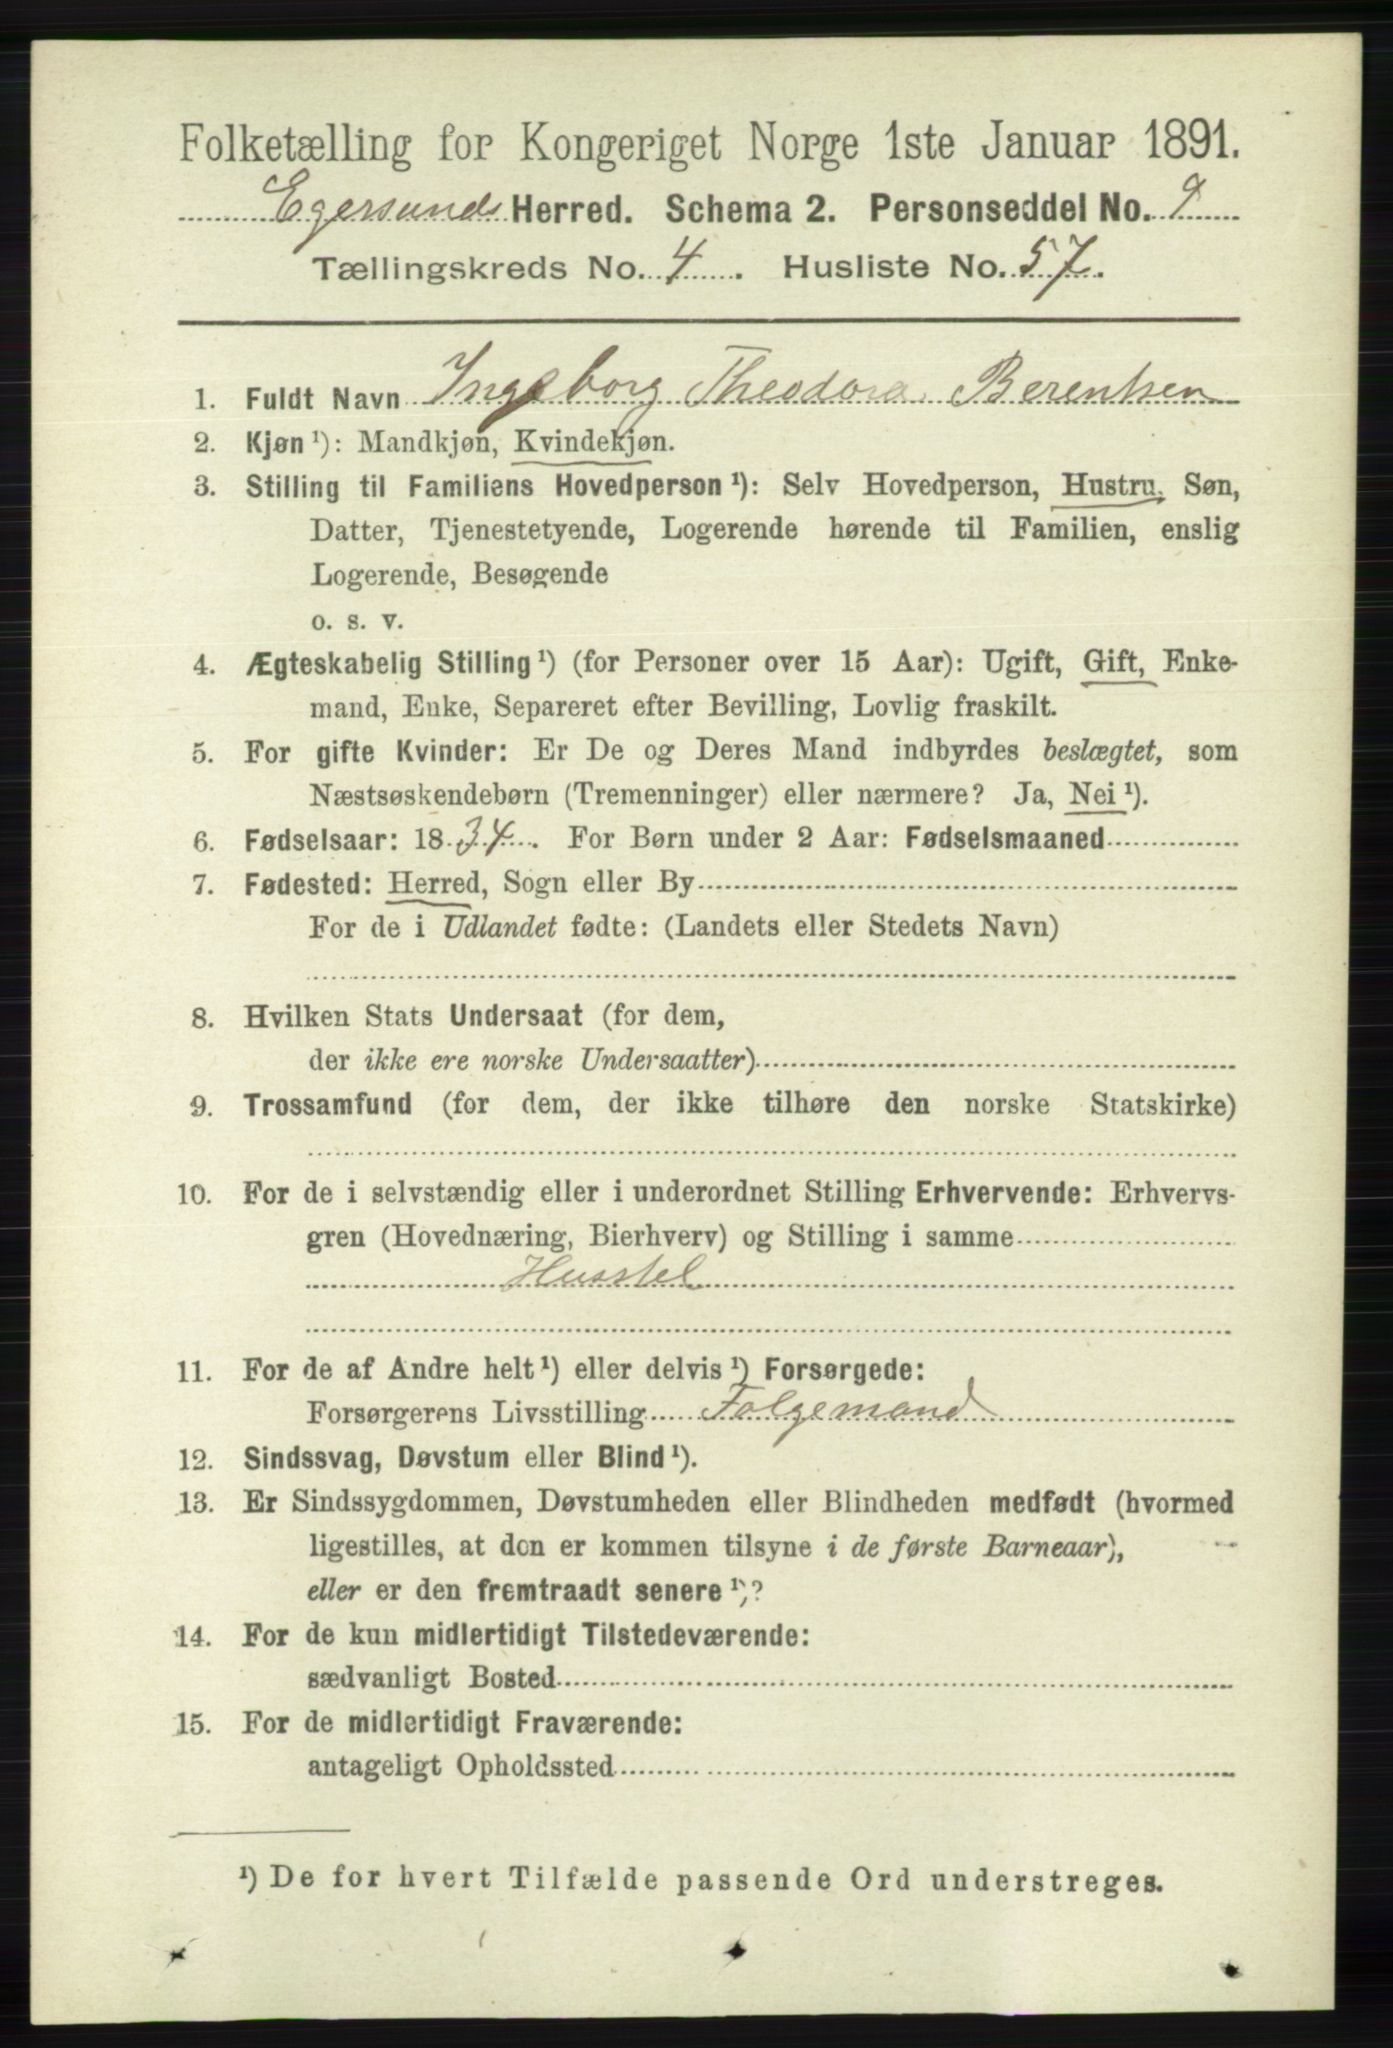 Folketælling for Kongeriget Norge 1ste Januar 1891.
Egersunds Herred. Schema 2. Personseddel No. 9
Tællingskreds No. 4. Husliste No. 57.
1. Fuldt Navn Ingeborg Theodora Berentsen
2. Kjøn ¹): Mandkjøn, Kvindekjøn.
3. Stilling til Familiens Hovedperson ¹): Selv Hovedperson, Hustru, Søn,
Datter, Tjenestetyende, Logerende hørende til Familien, enslig
Logerende, Besøgende
o. s. v.
4. Ægteskabelig Stilling ¹) (for Personer over 15 Aar): Ugift, Gift, Enke-
mand, Enke, Separeret efter Bevilling, Lovlig fraskilt.
5. For gifte Kvinder: Er De og Deres Mand indbyrdes beslægtet, som
Næstsøskendebørn (Tremenninger) eller nærmere? Ja, Nei ¹).
6. Fødselsaar: 1834. For Børn under 2 Aar: Fødselsmaaned
7. Fødested: Herred, Sogn eller By
For de i Udlandet fødte: (Landets eller Stedets Navn)
8. Hvilken Stats Undersaat (for dem,
der ikke ere norske Undersaatter)
9. Trossamfund (for dem, der ikke tilhøre den norske Statskirke)
10. For de i selvstændig eller i underordnet Stilling Erhvervende: Erhvervs-
gren (Hovednæring, Bierhverv) og Stilling i samme
Husstel
11. For de af Andre helt ¹) eller delvis ¹) Forsørgede:
Forsørgerens Livsstilling Folgemand
12. Sindssvag, Døvstum eller Blind ¹).
13. Er Sindssygdommen, Døvstumheden eller Blindheden medfødt (hvormed
ligestilles, at den er kommen tilsyne i de første Barneaar),
eller er den fremtraadt senere ¹)?
14. For de kun midlertidigt Tilstedeværende:
sædvanligt Bosted
15. For de midlertidigt Fraværende:
antageligt Opholdssted
¹) De for hvert Tilfælde passende Ord understreges.